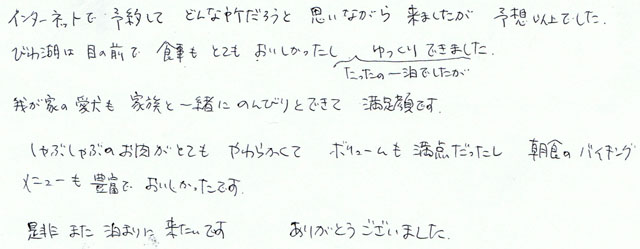 インターネットで予約してどんな所だろうと思いながら来ましたが予想以上でした.
びわ湖は目の前で食事もとてもおいしかったし、ゆっくりできました.
たったの一泊でしたが
我が家の愛犬も家族と一緒にのんびりとできて満足顔です.
しゃぶしゃぶのお肉がとてもやわらかくてボリュームも満点だったし朝食のバイキング
メニューも豊富でおいしかったです.
是非また泊まりに来たいです ありがとうございました.